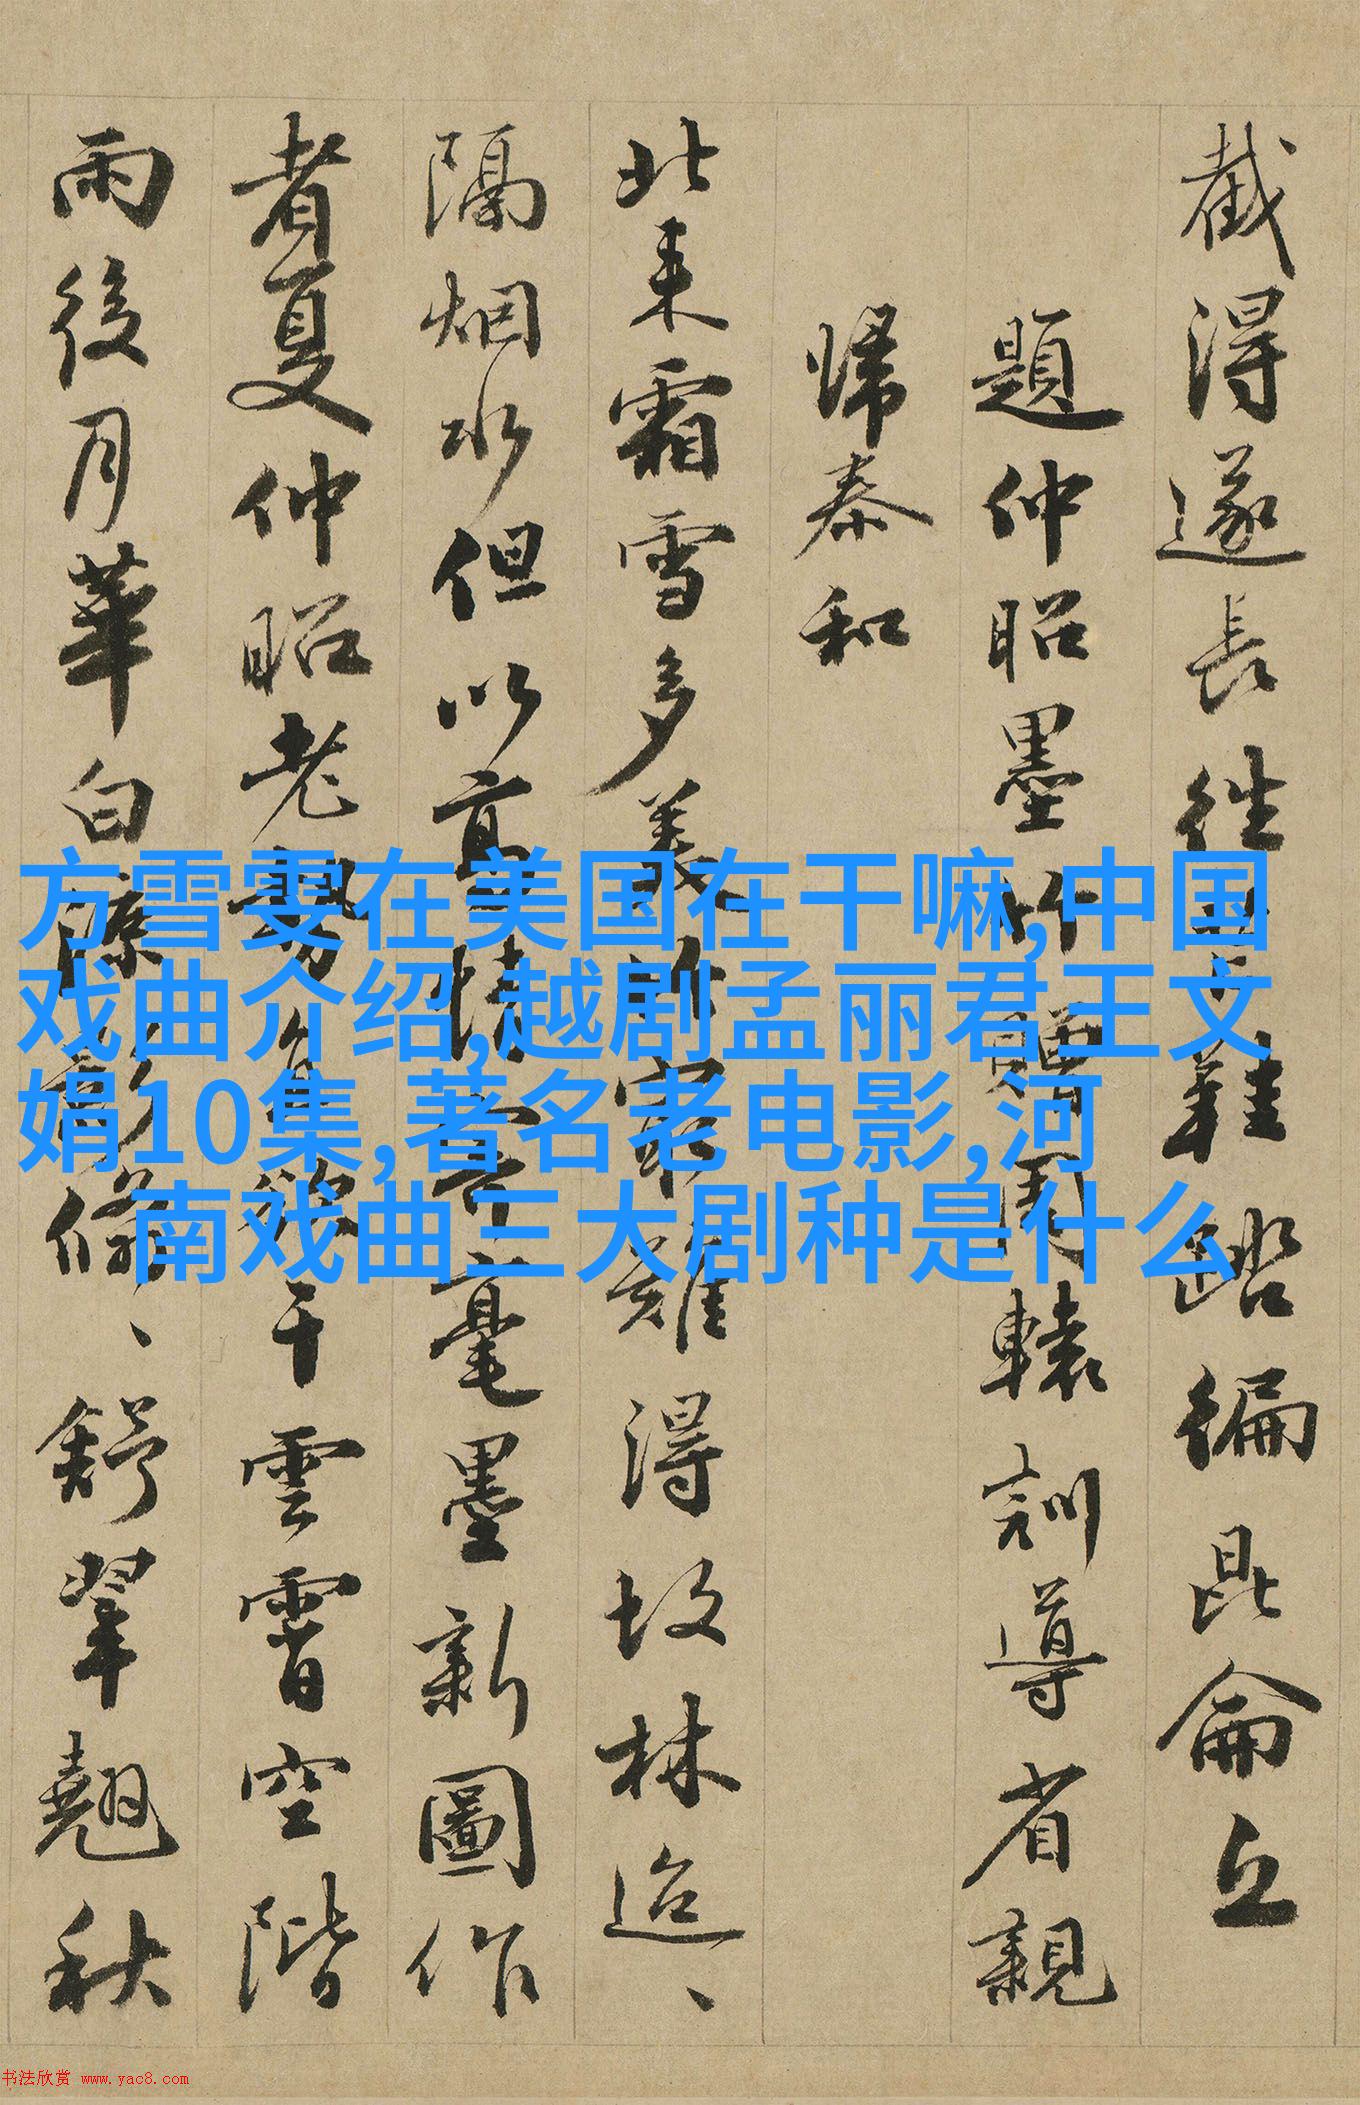 截得遂長往
踏编昆侖丘
題仲昭墨竹贈周轅訓導省親
歸秦和
北来霜雪多
難得坟林迢、
隔烟水但以高情
毫墨新圖作
者夏仲昭老
干雲霄空階
雨後月華白
翛、舒翠翹秋
方雪雯在美国在干嘛,中国
戏曲介绍,越剧孟丽君王文
娟10集,著名老电影,河
南戏曲三大剧种是什么
书法欣赏 www.yac8.com